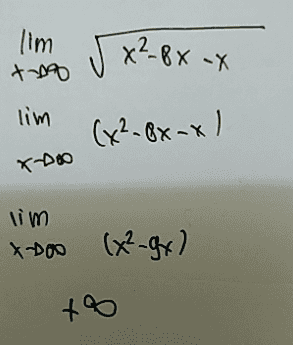 lim x→∞ √(x²-8x-x)
lim x→∞ (x²-8x-x)
lim x→∞ (x²-9x)
+∞